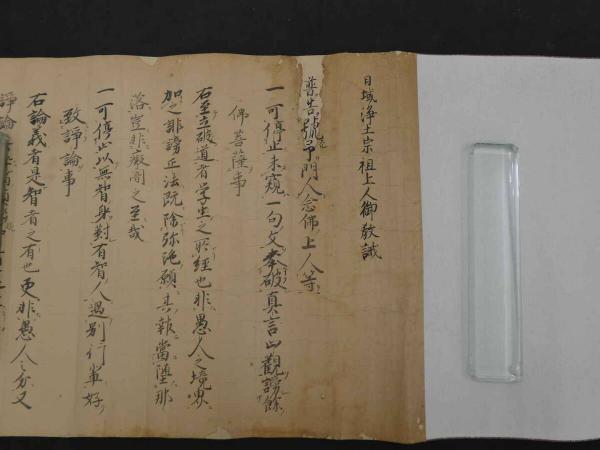 日域浄土宗祖上人御教誡
普告號予門人念佛上人等
一可停止未窺一句文奉破真言止観謗餘
佛菩薩事
右至立破道者学生之所経也非愚人之境界
加之誹謗正法既除弥陀願其報當堕那
落豈非癡闇之至哉
一可停止以無智身對有智人遇別行輩好
致諍論事
右論義者是智者之有也更非愚人之分又
諍論